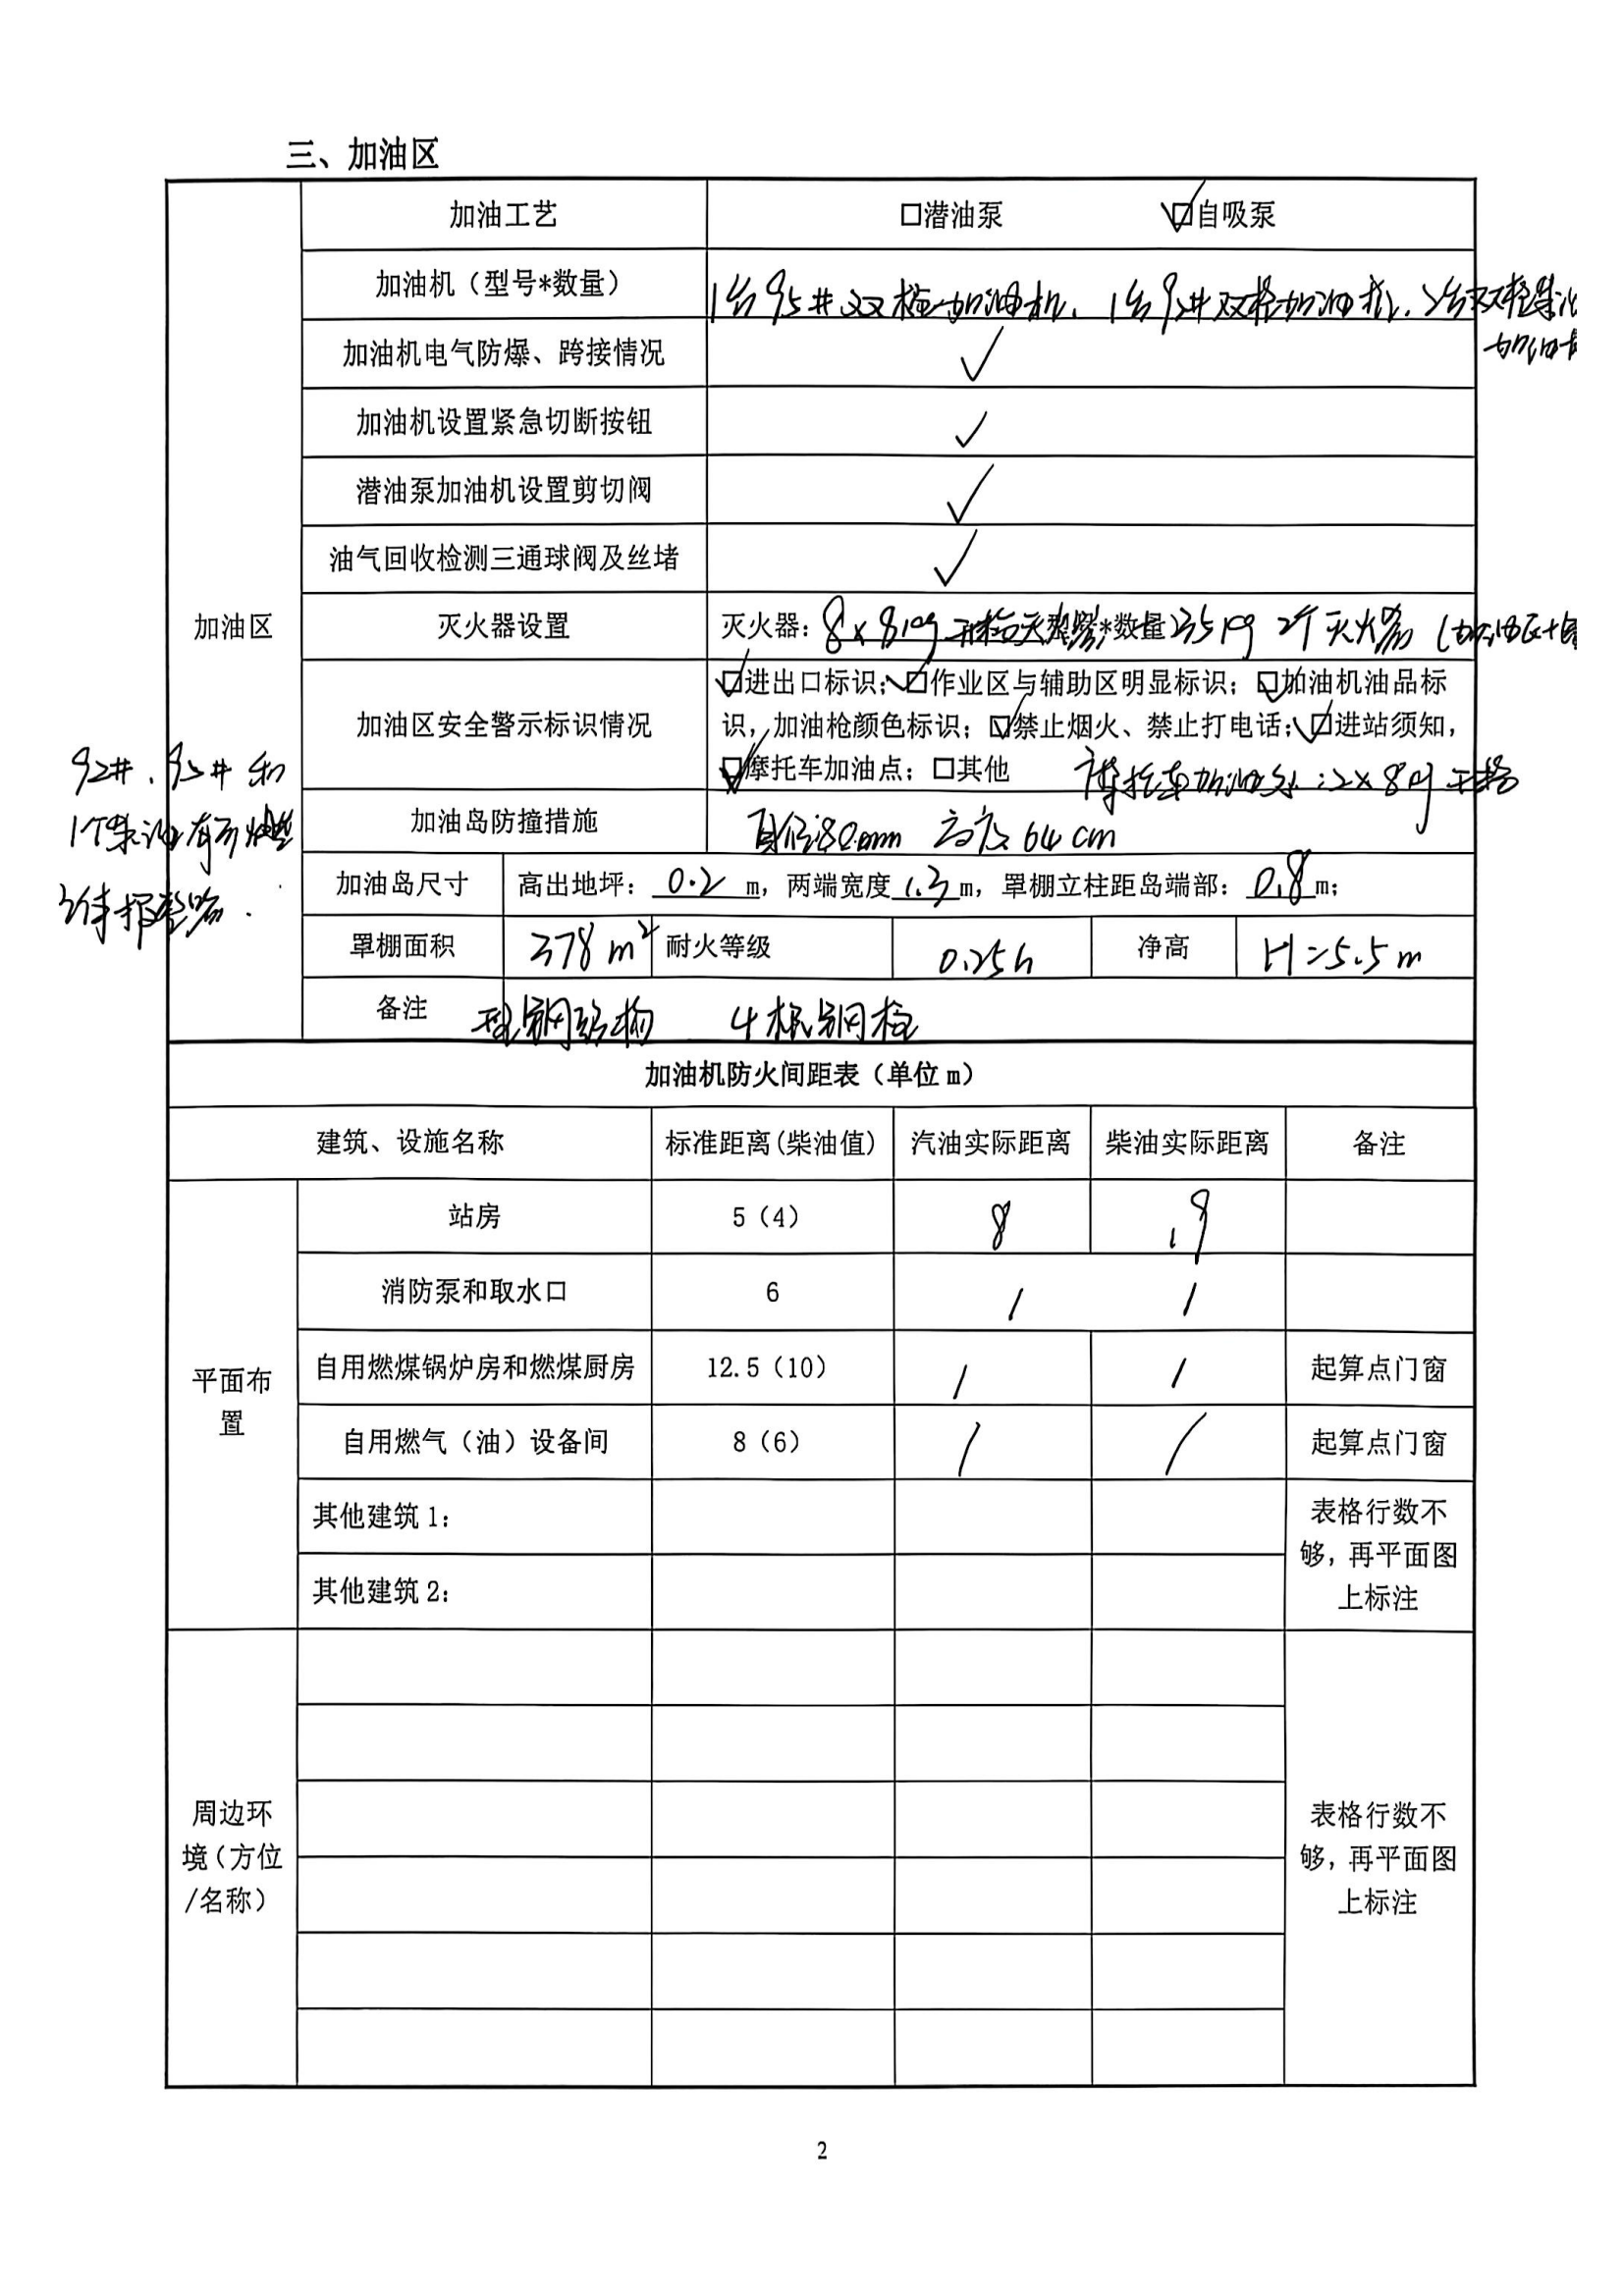 三、加油区
加油工艺 □潜油泵 ☑自吸泵
加油机（型号*数量） 1台95#双枪加油机、1台92#双枪加油机、2台双枪柴油
加油机
加油机电气防爆、跨接情况 ✓
加油机设置紧急切断按钮 ✓
潜油泵加油机设置剪切阀 ✓
油气回收检测三通球阀及丝堵 ✓
加油区
灭火器设置 灭火器：8×8kg 干粉灭火器 *数量） 35kg 2个灭火器
加油区安全警示标识情况 ☑进出口标识；☑作业区与辅助区明显标识；☑加油机油品标
识，加油枪颜色标识；☑禁止烟火、禁止打电话；☑进站须知，
☑摩托车加油点；□其他 摩托车加油处：2×8kg 干粉
92#、95#和
1个柴油有可燃
气体报警器.
加油岛防撞措施 直径80mm 高度64cm
加油岛尺寸 高出地坪：0.2 m，两端宽度 1.3 m，罩棚立柱距岛端部：0.8 m；
罩棚面积 378m² 耐火等级 0.25h 净高 H=5.5m
备注 型钢结构 4根钢柱
加油机防火间距表（单位 m）
建筑、设施名称 标准距离(柴油值) 汽油实际距离 柴油实际距离 备注
平面布
置
站房 5（4） 8 9
消防泵和取水口 6 / /
自用燃煤锅炉房和燃煤厨房 12.5（10） / / 起算点门窗
自用燃气（油）设备间 8（6） / / 起算点门窗
其他建筑 1：
其他建筑 2：
表格行数不
够，再平面图
上标注
周边环
境（方位
/名称）
表格行数不
够，再平面图
上标注
2